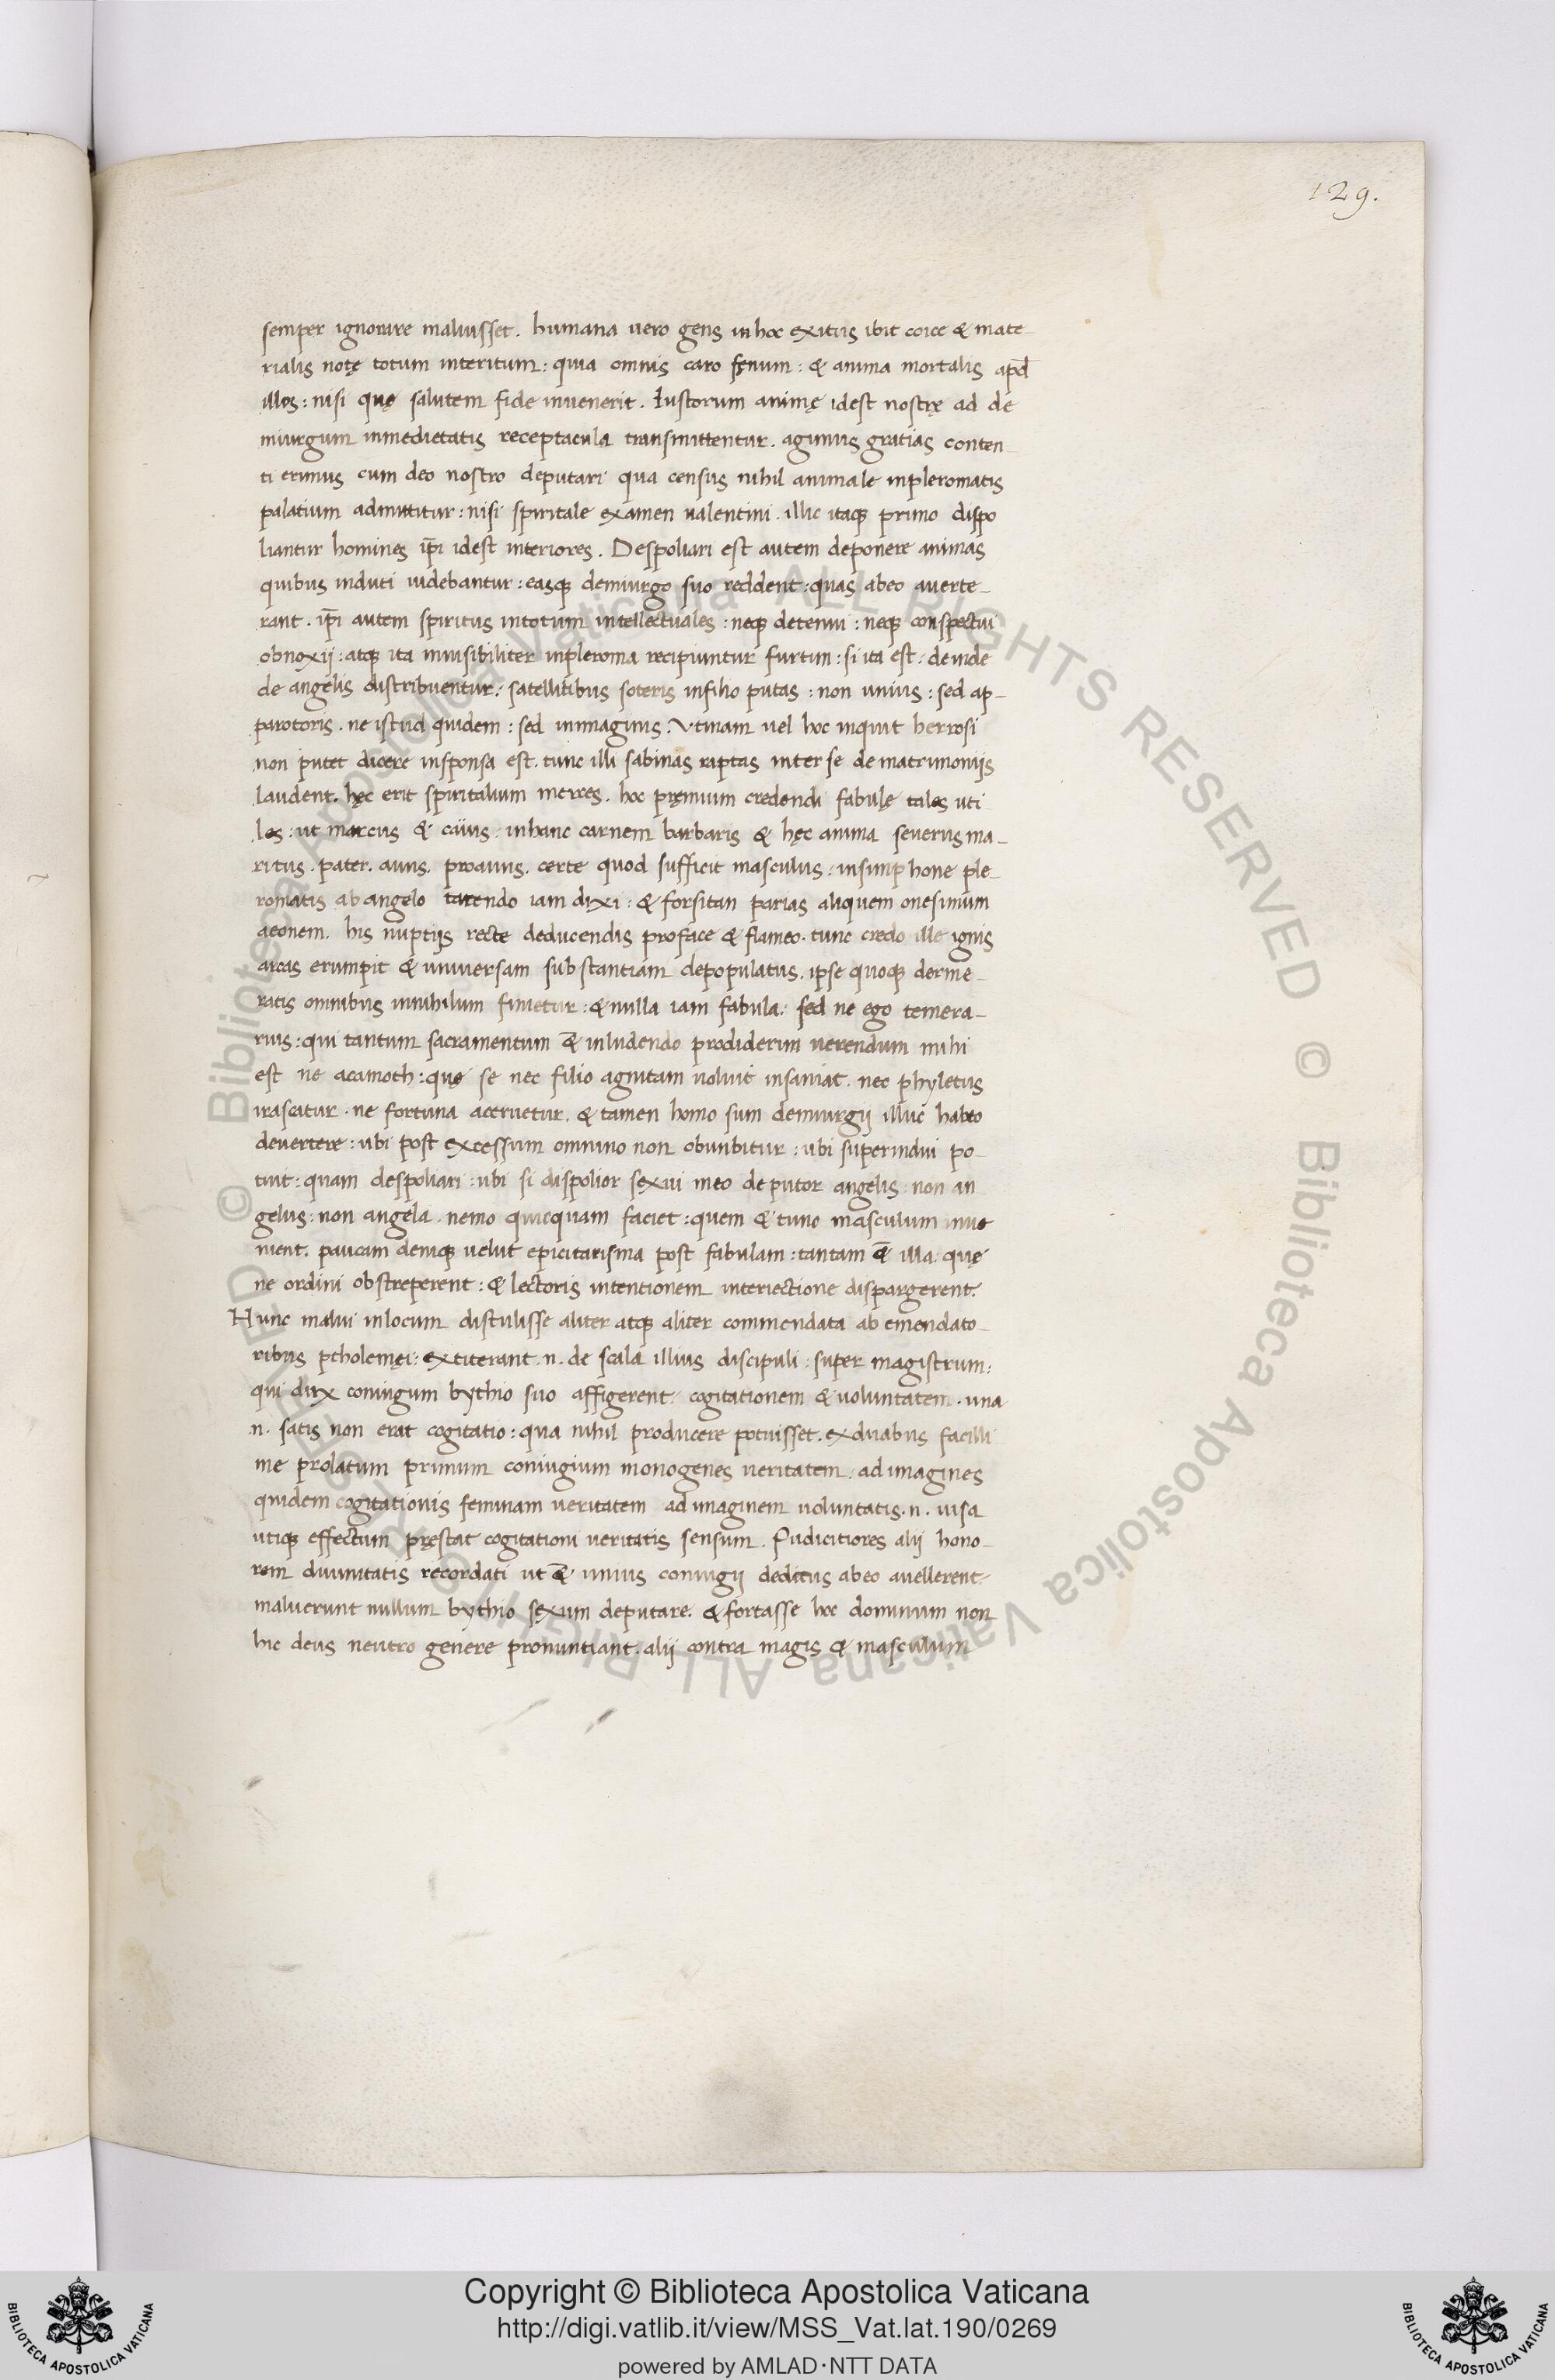 129.
semper ignorare maluisset. humana uero gens inhoc exitus ibit coice & mate-
rialis notę totum interitum: quia omnis caro fęnum: & anima mortalis apđ
illos: nisi quę salutem fide inuenerit. Iustorum animę idest nostrę ad de
miurgum inmedietatis receptacula transmittentur. agimus gratias conten-
ti erimus cum deo nostro deputari qua census nihil animale inpleromatis
palatium admittitur: nisi spiritale examen ualentini. illic itaq; primo dispo
liantur homines ip̄i idest interiores. Despoliari est autem deponere animas
quibus induti uidebantur: easq; demiurgo suo reddent: quas abeo auerte-
rant. ip̄i autem spiritus intotum intellectuales: neq; detenui: neq; conspectui
obnoxij: atq; ita inuisibiliter inpleroma recipiuntur furtim: si ita est: deinde
de angelis distribuentur: satellitibus soteris infilio putas: non unius: sed ap-
parotoris. ne istud quidem: sed inimaginis. Vtinam uel hoc inquit herrosi
non putet dicere insponsa est. tunc illi sabinas raptas inter se de matrimonijs
laudent. hęc erit spiritalium merces. hoc pręmium credendi fabulę tales uti
les: ut marcus & caius: inhanc carnem barbaris & hęc anima seuerus ma-
ritus. pater. auus. proauus. certe quod sufficit masculus: insimphone ple-
romatis ab angelo tacendo iam dixi: & forsitan parias aliquem onesimum
aeonem. his nuptijs recte deducendis proface & flameo. tunc credo ille ignis
arcas erumpit & uniuersam substantiam depopulatus. ipse quoq; derme-
ratis omnibus innihilum finietur: & nulla iam fabula: sed ne ego temera-
rius: qui tantum sacramentum & inludendo prodiderim uerendum mihi
est ne acamoth: quę se nec filio agnitam uoluit insaniat. nec phyletus
irascatur. ne fortuna aceruetur. & tamen homo sum demiurgij illuc habeo
deuertere: ubi post excessum omnino non obunbitur: ubi superindui po-
tuit: quam despoliari: ubi si dispolior sexui meo deputor angelis: non an
gelus: non angela. nemo quicquam faciet: quem & tunc masculum inue
nient. paucam deniq; uelut epicitarisma post fabulam: tantam & illa: quę
ne ordini obstreperent: & lectoris intentionem interiectione dispargerent.
Hunc malui inlocum distulisse aliter atq; aliter commendata ab emendato-
ribus ptholemęi: extiterant .n. de scala illius discipuli: super magistrum:
qui dux coniugum bythio suo affigerent: cogitationem & uoluntatem. una
.n. satis non erat cogitatio: qua nihil producere potuisset. exduabus facilli
me prolatum primum coniugium monogenes ueritatem: ad imagines
quidem cogitationis feminam ueritatem ad imaginem uoluntatis .n. uisa
utiq; effectum pręstat cogitationi ueritatis sensum. Pudicitiores alij hono-
rem diuinitatis recordati ut & unius coniugij deditus abeo auellerent-
maluerunt nullum bythio sexum deputare. & fortasse hoc dominum non
hic deus neutro genere pronuntiant. alij contra magis & masculum
Copyright © Biblioteca Apostolica Vaticana
http://digi.vatlib.it/view/MSS_Vat.lat.190/0269
powered by AMLAD·NTT DATA
BIBLIOTECA APOSTOLICA VATICANA
BIBLIOTECA APOSTOLICA VATICANA
© Biblioteca Apostolica Vaticana ALL RIGHTS RESERVED © Biblioteca Apostolica Vaticana ALL RIGHTS RESERVED